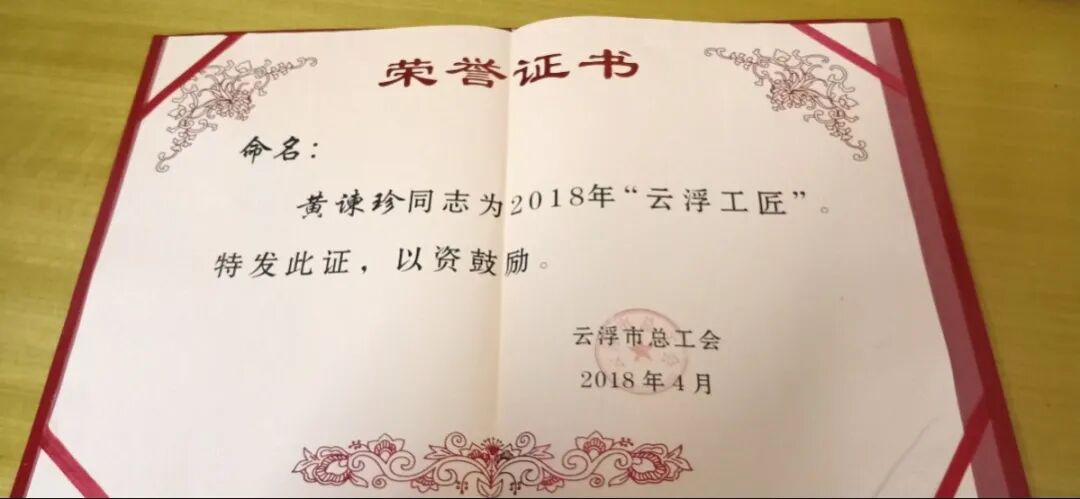 荣誉证书
命名：
黄谏珍同志为2018年“云浮工匠”。
特发此证，以资鼓励。
云浮市总工会
2018年4月